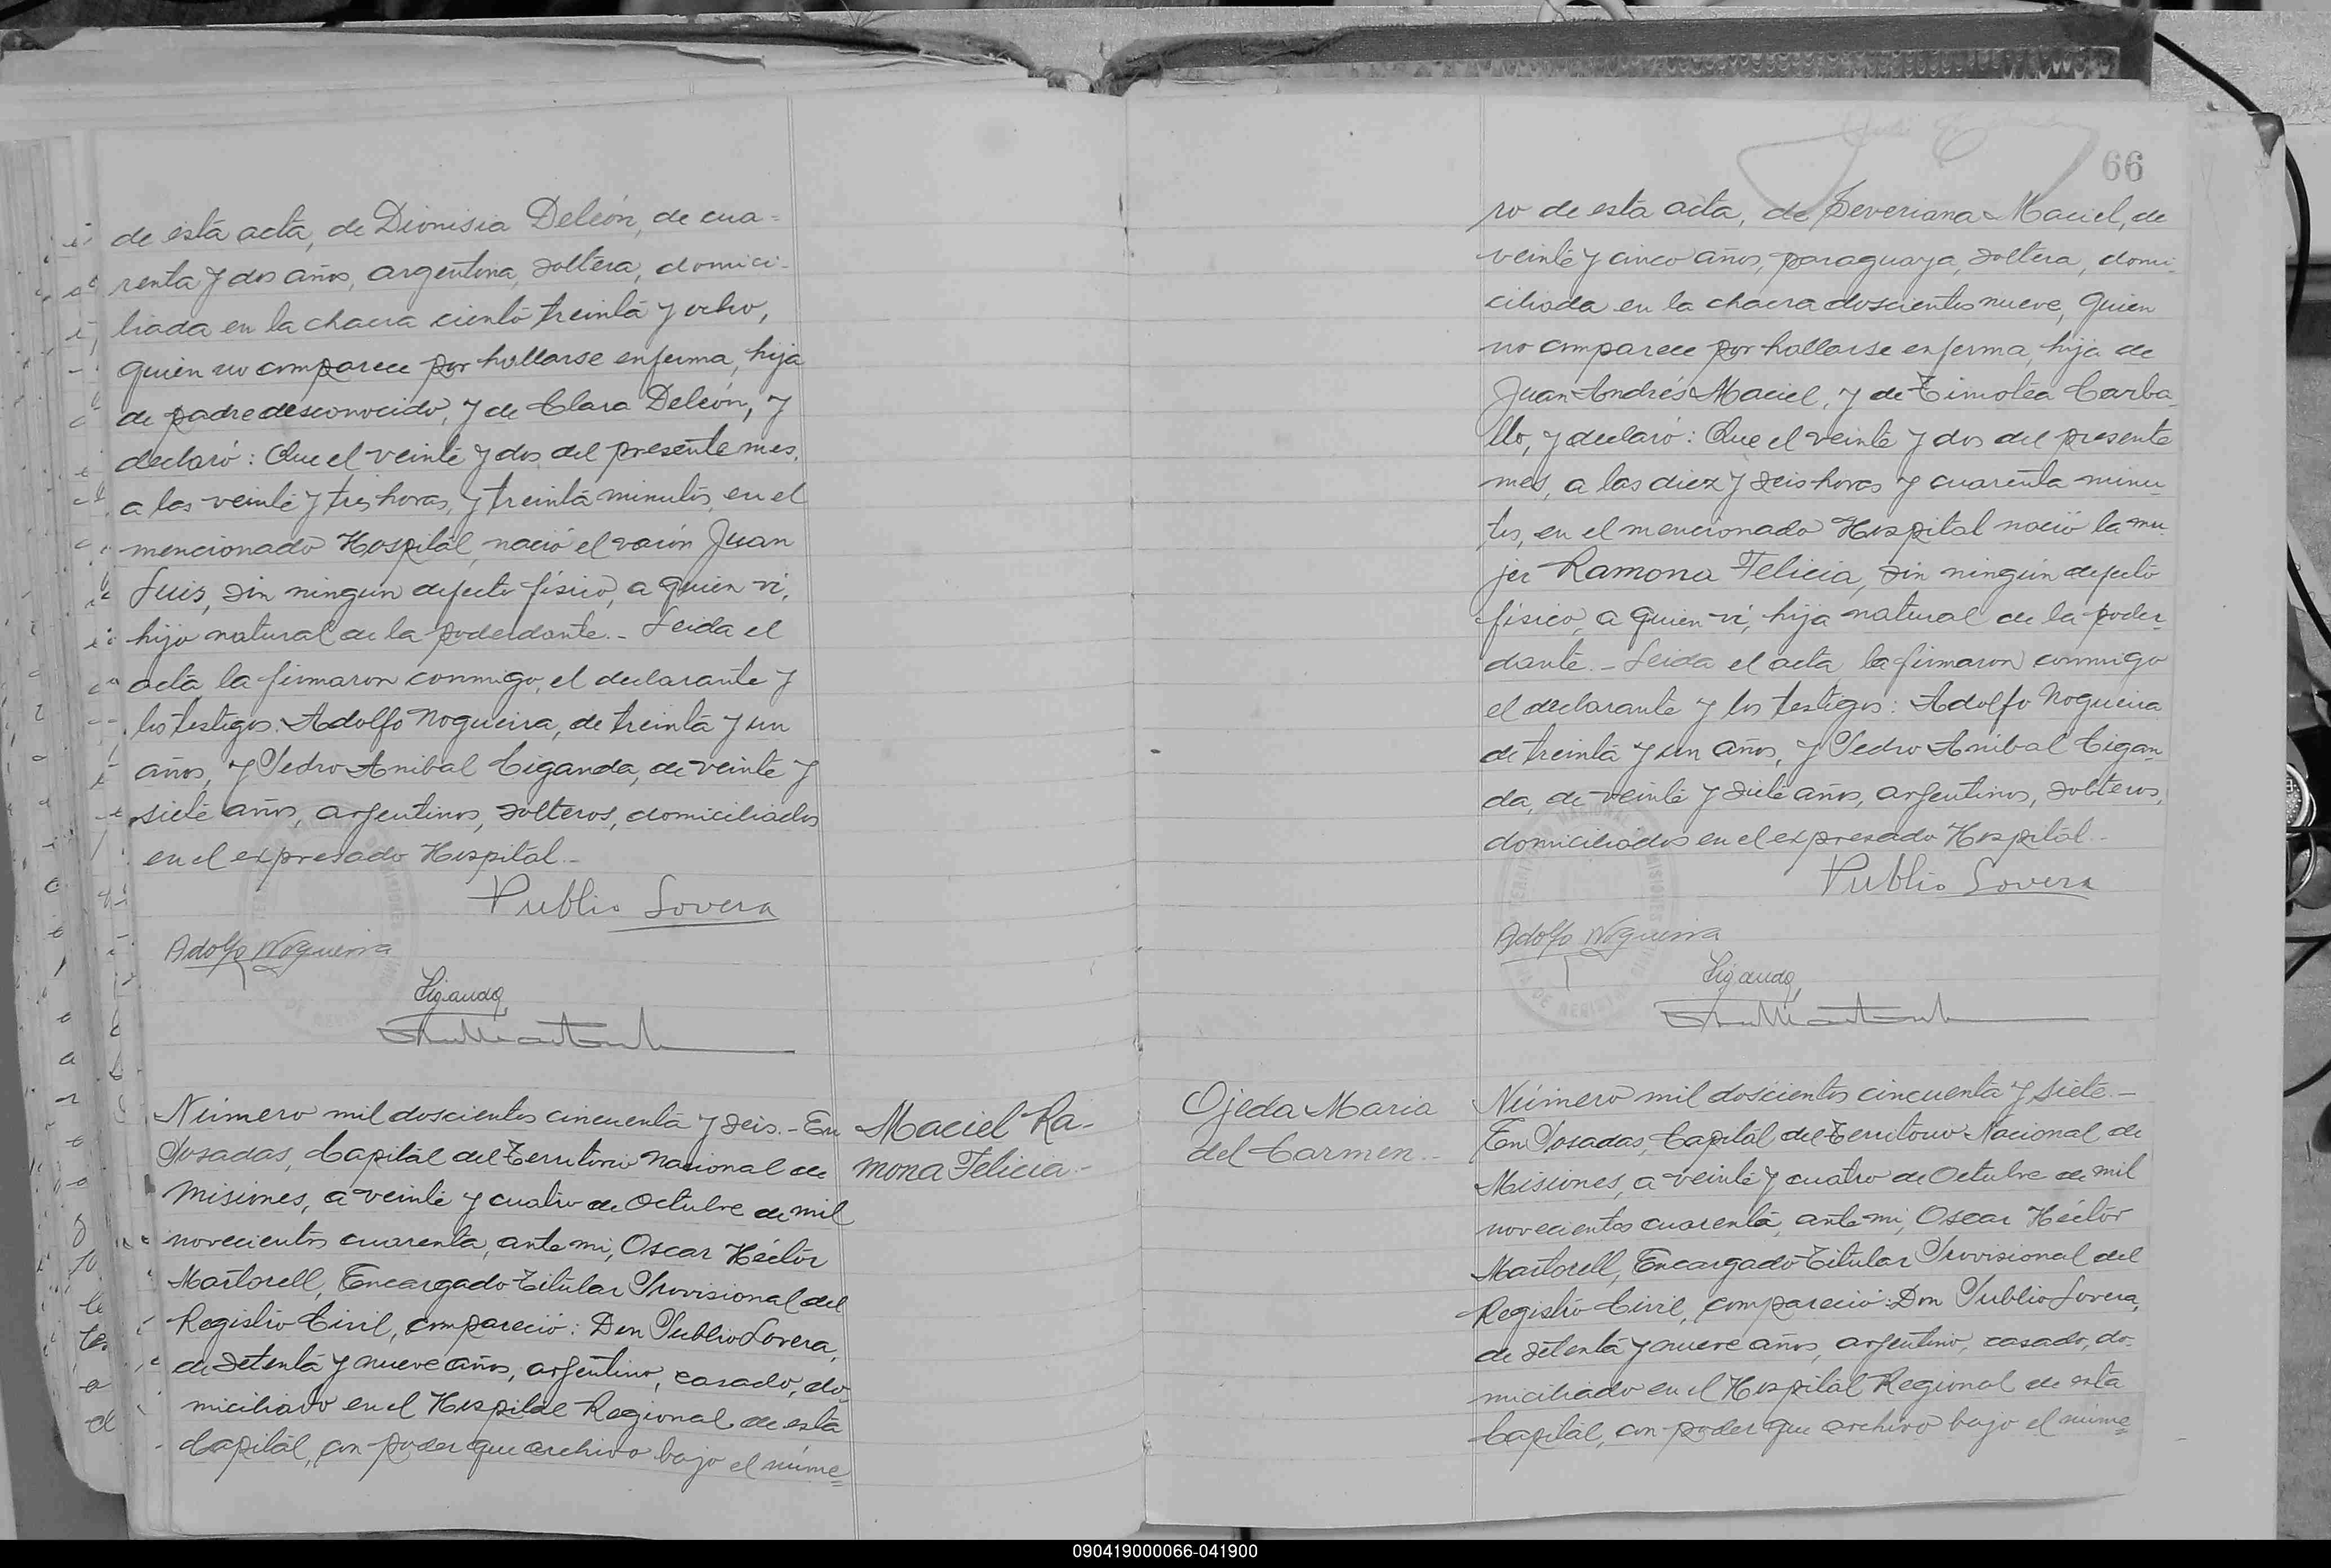 de esta acta, de Dionisia Deleón, de cua=
renta y dos años, argentina, soltera, domici-
liada en la chacra ciento treinta y ocho,
quien no comparece por hallarse enferma, hija
de padre desconocido, y de Clara Deleón, y
declaró: Que el veinte y dos del presente mes,
a las veinte y tres horas, y treinta minutos, en el
mencionado Hospital, nació el varón Juan
Luis, sin ningun defecto físico, a quien ví,
hijo natural de la poderdante.- Leida el
acta la firmaron conmigo, el declarante y
los testigos: Adolfo Nogueira, de treinta y un
años, y Pedro Anibal Ciganda, de veinte y
siete años, argentinos, solteros, domiciliados
en el expresado Hospital.-
Publio Lovera
Adolfo Nogueira
Ciganda
Número mil doscientos cincuenta y seis.- En
Posadas, Capital del Territorio Nacional de
Misiones, a veinte y cuatro de Octubre de mil
novecientos cuarenta, ante mi, Oscar Héctor
Martorell, Encargado Titular Provisional del
Registro Civil, compareció: Don Publio Lovera,
de setenta y nueve años, argentino, casado, do-
miciliado en el Hospital Regional de esta
Capital, con poder que archivo bajo el núme=
Maciel Ra-
mona Felicia.-
66
ro de esta acta, de Severiana Maciel, de
veinte y cinco años, paraguaya, soltera, domi-
ciliada en la chacra doscientos nueve, quien
no comparece por hallarse enferma, hija de
Juan Andrés Maciel, y de Timotea Carba-
llo, y declaró: Que el veinte y dos del presente
mes, a las diez y seis horas y cuarenta minu-
tos, en el mencionado Hospital nació la mu-
jer Ramona Felicia, sin ningún defecto
físico, a quien ví, hija natural de la poder-
dante.- Leida el acta la firmaron conmigo
el declarante y los testigos: Adolfo Nogueira
de treinta y un años, y Pedro Anibal Cigan-
da, de veinte y siete años, argentinos, solteros,
domiciliados en el expresado Hospital.-
Publio Lovera
Adolfo Nogueira
Ciganda
Ojeda Maria
del Carmen.-
Número mil doscientos cincuenta y siete.-
En Posadas, Capital del Territorio Nacional de
Misiones, a veinte y cuatro de Octubre de mil
novecientos cuarenta, ante mi, Oscar Héctor
Martorell, Encargado Titular Provisional del
Registro Civil, compareció: Don Publio Lovera,
de setenta y nueve años, argentino, casado, do-
miciliado en el Hospital Regional de esta
Capital, con poder que archivo bajo el núme=
090419000066-041900